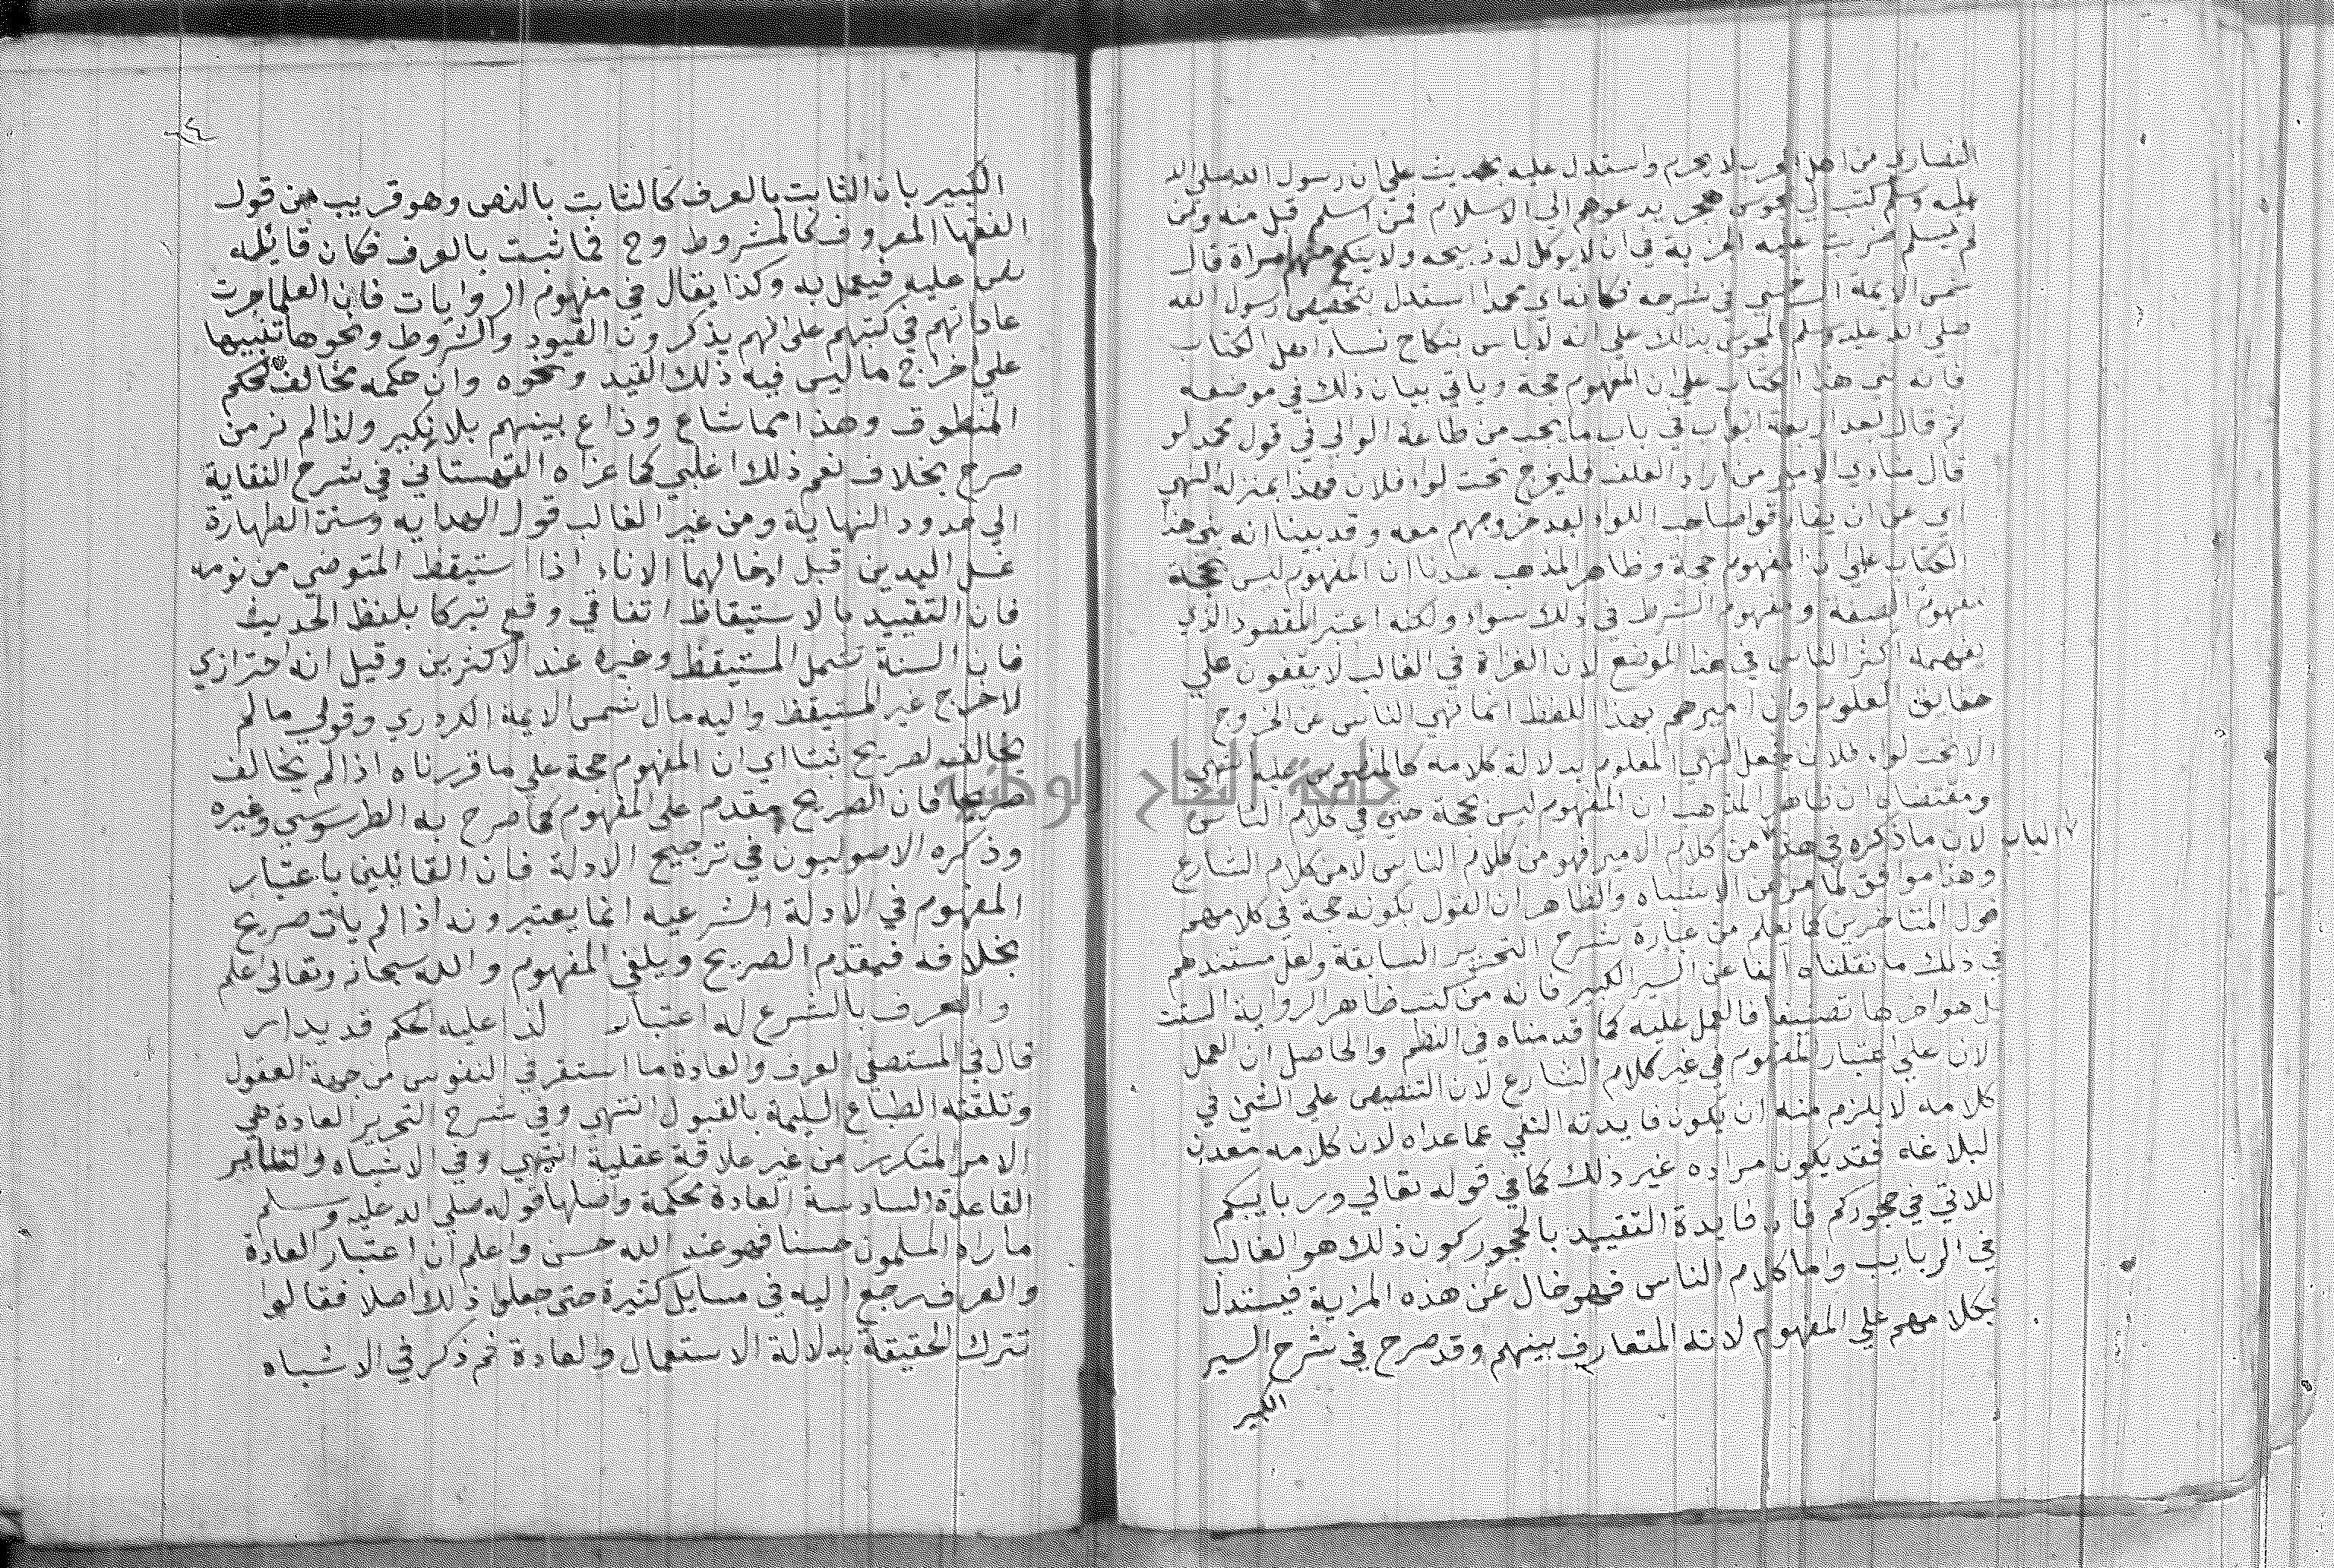 النصارى من اهل الحرب لا يحرم واستدل عليه بحديث علي ان رسول الله صلى الله
عليه وسلم كتب الي مجوس هجر يدعوهم الي الاسلام فمن اسلم قبل منه ومن
لم يسلم ضربت عليه الجزية في ان لا يوكل له ذبيحه ولا ينكح منهم امراة قال
شمس الايمة السرخسي في شرحه فكانه اي محمدا استدل بتخصيص رسول الله
صلي الله عليه وسلم المجوس بذلك علي انه لا باس بنكاح نساء اهل الكتاب
فانه بني هذا الكتاب علي ان المفهوم حجة وياتي بيان ذلك في موضعه
ثم قال بعد اربعة ابواب في باب ما يجب من طاعة الوالي في قول محمد لو
قال منادي الامير من اراد العلف فليخرج تحت لواء فلان فهذا بمنزلة النهي
اي عن ان يفارقوا صاحب اللواء بعد خروجهم معه وقد بينا انه بني هذا
الكتاب علي ان المفهوم حجة وظاهر المذهب عندنا ان المفهوم ليس بحجة
مفهوم الصفة ومفهوم الشرط في ذلك سواء ولكنه اعتبر المقصود الذي
يفهمه اكثر الناس في هذا الموضع لان الغزاة في الغالب لا يقفون علي
حقايق العلوم وان اميرهم بهذا اللفظ انما نهي الناس عن الخروج
الا تحت لواء فلان فجعل النهي المعلوم بدلالة كلامه كالمنصوص عليه انتهي
ومقتضاه ان ظاهر المذهب ان المفهوم ليس بحجة حتي في كلام الناس
لان ما ذكره في هذا الباب من كلام الامير فهو من كلام الناس لا من كلام الشارع
وهذا موافق لما مر عن الاشباه والظاهر ان القول بكونه حجة في كلامهم
قول المتاخرين كما يعلم من عبارة شرح التحرير السابقة ولعل مستندهم
في ذلك ما نقلناه انفا عن السير الكبير فانه من كتب ظاهر الرواية الستة
بل هو اخرها تصنيفا فالعمل عليه كما قدمناه في النظم والحاصل ان العمل
لان علي اعتبار المفهوم في غير كلام الشارع لان التنصيص علي الشئ في
كلامه لا يلزم منه ان يكون فايدته النفي عما عداه لان كلامه معدن
لبلاغه فقد يكون مراده غير ذلك كما في قوله تعالي وربايبكم
للاتي في حجوركم فان فايدة التقييد بالحجور كون ذلك هو الغالب
في الربايب واما كلام الناس فهو خال عن هذه المزاية فيستدل
بكلامهم علي المفهوم لانه المتعارف بينهم وقد صرح في شرح السير
الكبير
الكبير بان الثابت بالعرف كالثابت بالنص وهو قريب من قول
الفقها المعروف كالمشروط وح فما ثبت بالعرف فكان قائله
نص عليه فيعمل به وكذا يقال في مفهوم الروايات فان العلما جرت
عاداتهم في كتبهم علي انهم يذكرون القيود والشروط ونحوها تنبيها
علي اخراج ما ليس فيه ذلك القيد ونحوه وان حكمه مخالف لحكم
المنطوق وهذا مما شاع وذاع بينهم بلا نكير ولذا لم نر من
صرح بخلافه نعم ذلك اغلبي كما عزاه القهستاني في شرح النقاية
الي حدود النهاية ومن غير الغالب قول الهدايه وسنن الطهارة
غسل اليدين قبل ادخالهما الاناء اذا استيقظ المتوضي من نومه
فان التقييد بالاستيقاظ اتفاقي وقع تبركا بلفظ الحديث
فان السنة تشمل المستيقظ وغيره عند الاكثرين وقيل انه احترازي
لاخراج غير المستيقظ واليه مال شمس الايمة الكردري وقولي ما لم
يخالف لصريح ثبتا اي ان المفهوم حجة علي ما قررناه اذا لم يخالف
صريحا فان الصريح مقدم علي المفهوم كما صرح به الطرسوسي وغيره
وذكره الاصوليون في ترجيح الادلة فان القائلين باعتبار
المفهوم في الادلة الشرعيه انما يعتبرونه اذا لم يات صريح
بخلافه فيقدم الصريح ويلغي المفهوم والله سبحانه وتعالى اعلم
والعرف بالشرع له اعتبار لذا عليه الحكم قد يدار
قال في المستصفي العرف والعادة ما استقر في النفوس من جهة العقول
وتلقته الطباع السليمة بالقبول انتهي وفي شرح التحرير العادة هي
الامر المتكرر من غير علاقة عقلية انتهي وفي الاشباه والنظاير
القاعدة السادسة العادة محكمة واصلها قوله صلي الله عليه وسلم
ما راه المسلمون حسنا فهو عند الله حسن واعلم ان اعتبار العادة
والعرف رجع اليه في مسايل كثيرة حتي جعلوا ذلك اصلا فقالوا
تترك الحقيقة بدلالة الاستعمال والعادة ثم ذكر في الاشباه
جامعة النجاح الوطنية